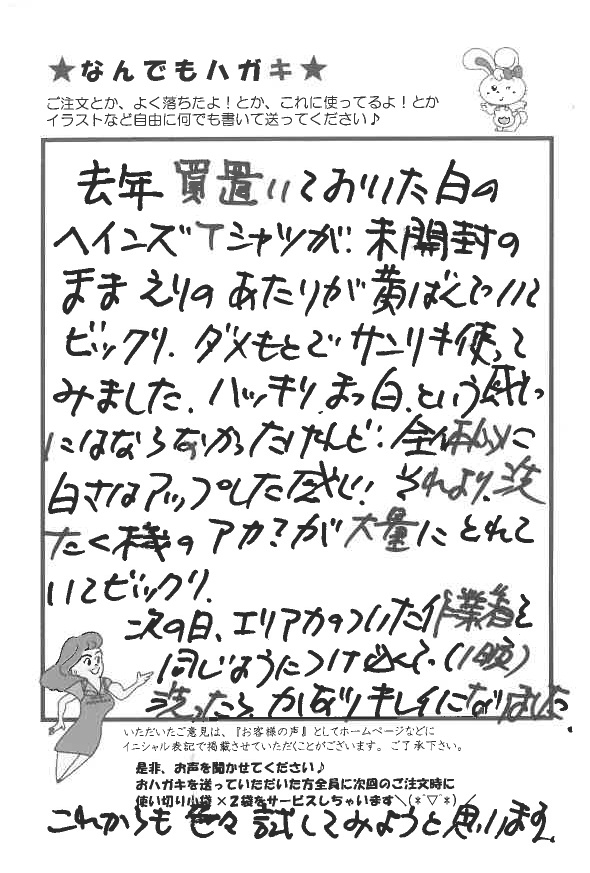 ★なんでもハガキ★
ご注文とか、よく落ちたよ！とか、これに使ってるよ！とか
イラストなど自由に何でも書いて送ってください♪
去年 買置いておいた白の
ヘインズTシャツが、未開封の
まま えりの あたりが 黄ばんでいて
ビックリ。ダメもとで サンリキ使って
みました。ハッキリ、まっ白、という感じ
にはならなかったけれど、全体的に
白さはアップした感じ！ それより、洗
たく機の アカ？が 大量に とれて
いてビックリ。
次の日、エリアカのついた作業着を
同じようにつけ込んで、(1晩)
洗ったら、かなりキレイになりました。
いただいたご意見は、『お客様の声』としてホームページなどに
イニシャル表記で掲載させていただくことがございます。ご了承下さい。
是非、お声を聞かせてください♪
おハガキを送っていただいた方全員に次回のご注文時に
使い切り小袋×2袋をサービスしちゃいます＼(*´▽`*)／
これからも 色々 試してみようと思います。